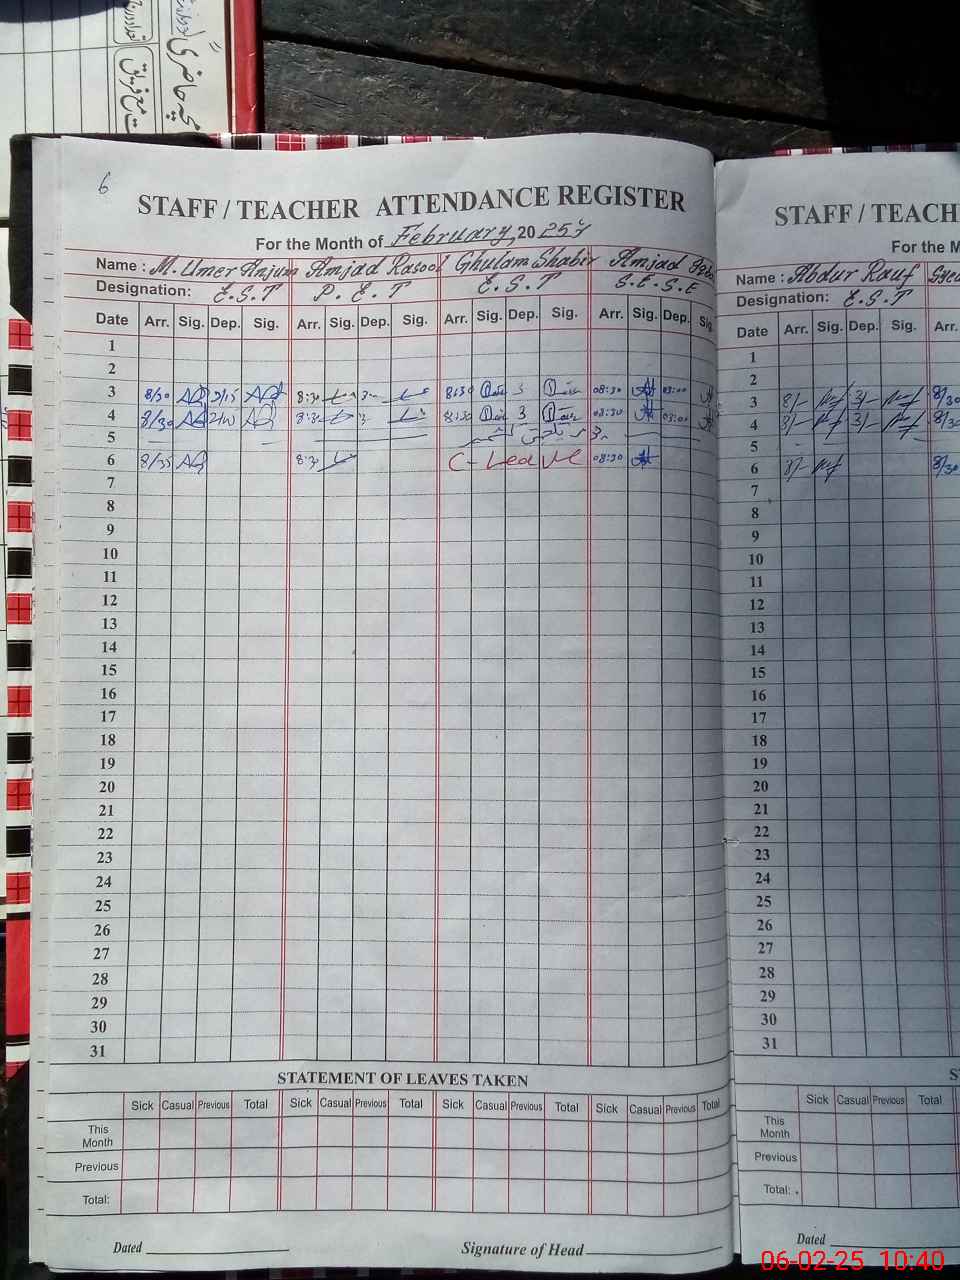 6
STAFF / TEACHER ATTENDANCE REGISTER
For the Month of February, 2025
Name : M. Umer Anjum Amjad Rasool Ghulam Shabir Amjad
Designation: E.S.T P.E.T E.S.T S.E.S.E
Date Arr. Sig. Dep. Sig. Arr. Sig. Dep. Sig. Arr. Sig. Dep. Sig. Arr. Sig. Dep. Sig.
1
2
3 8/30 2/15 8:30 3 8:30 3 08:30 03:00
4 8/30 8:30 3 8:30 3 08:30 03:00
5
6 8/35 8:30 C-Leave 08:30
7
8
9
10
11
12
13
14
15
16
17
18
19
20
21
22
23
24
25
26
27
28
29
30
31
STATEMENT OF LEAVES TAKEN
Sick Casual Previous Total Sick Casual Previous Total Sick Casual Previous Total Sick Casual Previous Total
This Month
Previous
Total:
Dated Signature of Head
STAFF / TEACH
For the M
Name : Abdur Rauf Sye
Designation: E.S.T
Date Arr. Sig. Dep. Sig. Arr.
1
2
3 8/- 3/- 8/30
4 8/- 3/- 8/30
5
6 8/- 8/30
7
8
9
10
11
12
13
14
15
16
17
18
19
20
21
22
23
24
25
26
27
28
29
30
31
S
Sick Casual Previous Total
This Month
Previous
Total:
Dated
06-02-25 10:40